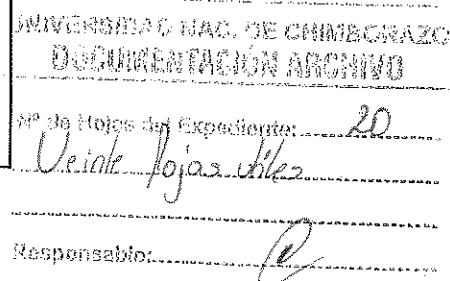 UNIVERSIDAD NAC. DE CHIMBORAZO
DOCUMENTACIÓN ARCHIVO
Nº de Hojas del Expediente: 20
Veinte Hojas útiles
Responsable: